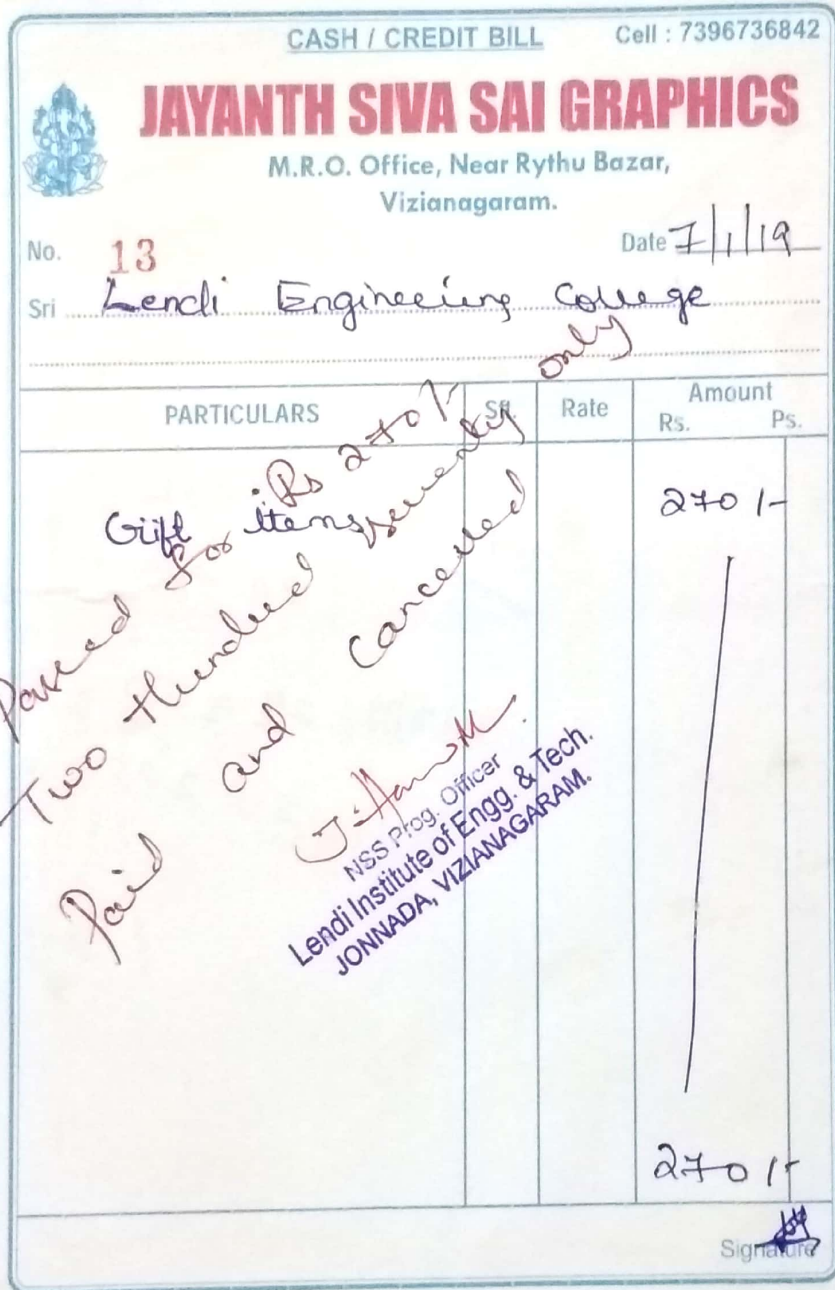 CASH / CREDIT BILL
Cell : 7396736842
JAYANTH SIVA SAI GRAPHICS
M.R.O. Office, Near Rythu Bazar,
Vizianagaram.
No. 13
Date 7/1/19
Sri Lendi Engineering College
PARTICULARS
Rate
Amount
Rs. Ps.
Gift items
270/-
Passed for Rs 270/-
Two Hundred seventy only
Paid and Cancelled
NSS Prog. Officer
Lendi Institute of Engg. & Tech.
JONNADA, VIZIANAGARAM.
270/-
Signature